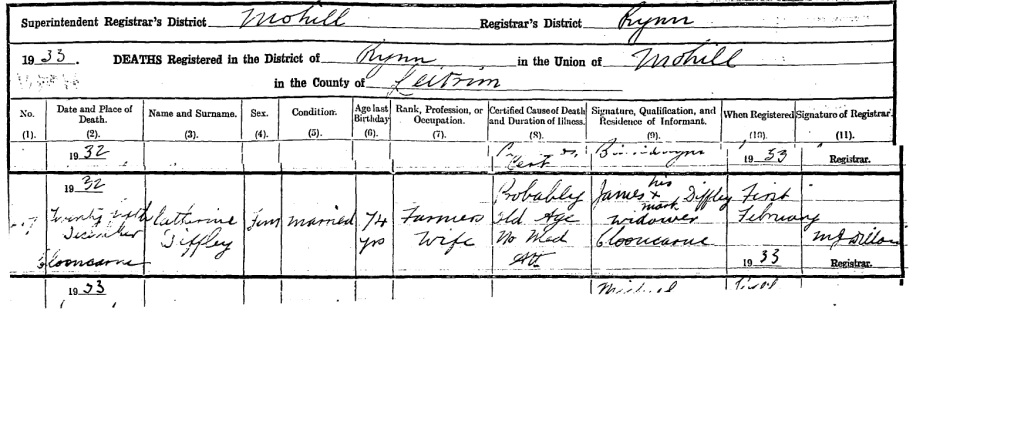 Superintendent Registrar's District Mohill Registrar's District Rynn
1933. DEATHS Registered in the District of Rynn in the Union of Mohill
in the County of Leitrim
No. Date and Place of Death. Name and Surname. Sex. Condition. Age last Birthday Rank, Profession, or Occupation. Certified Cause of Death and Duration of Illness. Signature, Qualification, and Residence of Informant. When Registered Signature of Registrar.
(1). (2). (3). (4). (5). (6). (7). (8). (9). (10). (11).
1932 Cert 1933 Registrar.
1932 Probably James his x mark Diffley First
Twenty December Catherine Diffley Fem married 74 yrs Farmers Wife Old Age No Med Att widower Clooncarne February MJ Dillon
Clooncarne 1933 Registrar.
1933 Michael